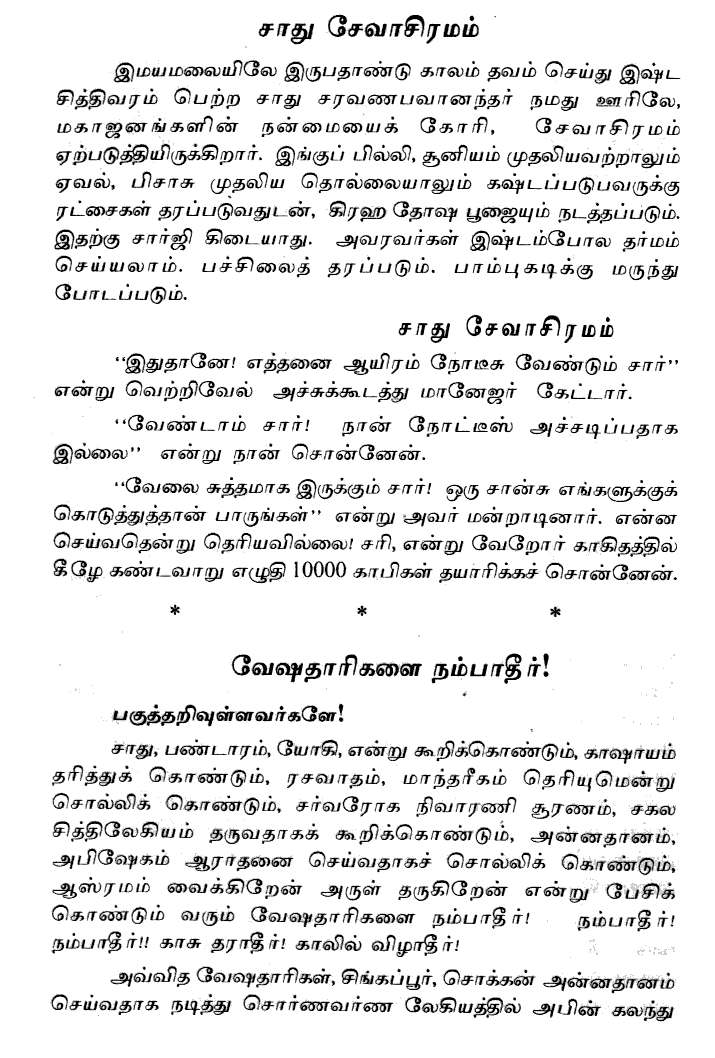 சாது சேவாசிரமம்
இமயமலையிலே இருபதாண்டு காலம் தவம் செய்து இஷ்ட
சித்திவரம் பெற்ற சாது சரவணபவானந்தர் நமது ஊரிலே,
மகாஜனங்களின் நன்மையைக் கோரி, சேவாசிரமம்
ஏற்படுத்தியிருக்கிறார். இங்குப் பில்லி, சூனியம் முதலியவற்றாலும்
ஏவல், பிசாசு முதலிய தொல்லையாலும் கஷ்டப்படுபவருக்கு
ரட்சைகள் தரப்படுவதுடன், கிரஹ தோஷ பூஜையும் நடத்தப்படும்.
இதற்கு சார்ஜி கிடையாது. அவரவர்கள் இஷ்டம்போல தர்மம்
செய்யலாம். பச்சிலைத் தரப்படும். பாம்புகடிக்கு மருந்து
போடப்படும்.
சாது சேவாசிரமம்
“இதுதானே! எத்தனை ஆயிரம் நோடீசு வேண்டும் சார்”
என்று வெற்றிவேல் அச்சுக்கூடத்து மானேஜர் கேட்டார்.
“வேண்டாம் சார்! நான் நோட்டீஸ் அச்சடிப்பதாக
இல்லை” என்று நான் சொன்னேன்.
“வேலை சுத்தமாக இருக்கும் சார்! ஒரு சான்சு எங்களுக்குக்
கொடுத்துத்தான் பாருங்கள்” என்று அவர் மன்றாடினார். என்ன
செய்வதென்று தெரியவில்லை! சரி, என்று வேறோர் காகிதத்தில்
கீழே கண்டவாறு எழுதி 10000 காபிகள் தயாரிக்கச் சொன்னேன்.
* * *
வேஷதாரிகளை நம்பாதீர்!
பகுத்தறிவுள்ளவர்களே!
சாது, பண்டாரம், யோகி, என்று கூறிக்கொண்டும், காஷாயம்
தரித்துக் கொண்டும், ரசவாதம், மாந்தரீகம் தெரியுமென்று
சொல்லிக் கொண்டும், சர்வரோக நிவாரணி சூரணம், சகல
சித்திலேகியம் தருவதாகக் கூறிக்கொண்டும், அன்னதானம்,
அபிஷேகம் ஆராதனை செய்வதாகச் சொல்லிக் கொண்டும்,
ஆஸ்ரமம் வைக்கிறேன் அருள் தருகிறேன் என்று பேசிக்
கொண்டும் வரும் வேஷதாரிகளை நம்பாதீர்! நம்பாதீர்!
நம்பாதீர்!! காசு தராதீர்! காலில் விழாதீர்!
அவ்வித வேஷதாரிகள், சிங்கப்பூர், சொக்கன் அன்னதானம்
செய்வதாக நடித்து சொர்ணவர்ண லேகியத்தில் அபின் கலந்து